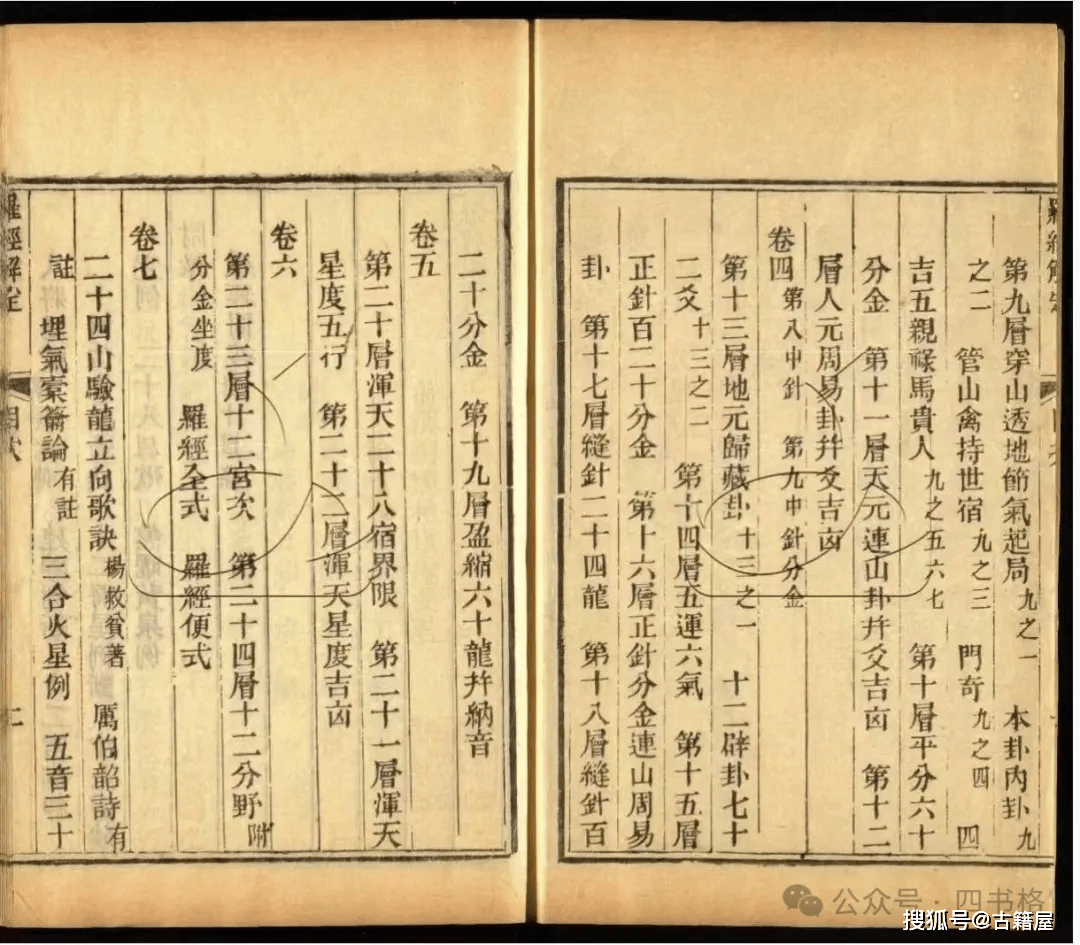 第九層穿山透地節氣起局 九之一 本卦內卦 九
之二 管山禽持世宿 九之三 門奇 九之四 四
吉五親祿馬貴人 九之五六七 第十層平分六十
分金 第十一層天元連山卦幷爻吉凶 第十二
層人元周易卦幷爻吉凶
卷四 第八中針 第九中針分金
第十三層地元歸藏卦 十三之一 十二辟卦七十
二爻 十三之二 第十四層五運六氣 第十五層
正針百二十分金 第十六層正針分金連山周易
卦 第十七層縫針二十四龍 第十八層縫針百
二十分金 第十九層盈縮六十龍幷納音
卷五
第二十層渾天二十八宿界限 第二十一層渾天
星度五行 第二十二層渾天星度吉凶
卷六
第二十三層十二宮次 第二十四層十二分野 附
分金坐度 羅經全式 羅經便式
卷七
二十四山驗龍立向歌訣 楊救貧著 厲伯韶詩 有
註 埋氣索篇論 有註 三合火星例 五音三十
羅經解定
公众号·四书格
搜狐号@古籍屋